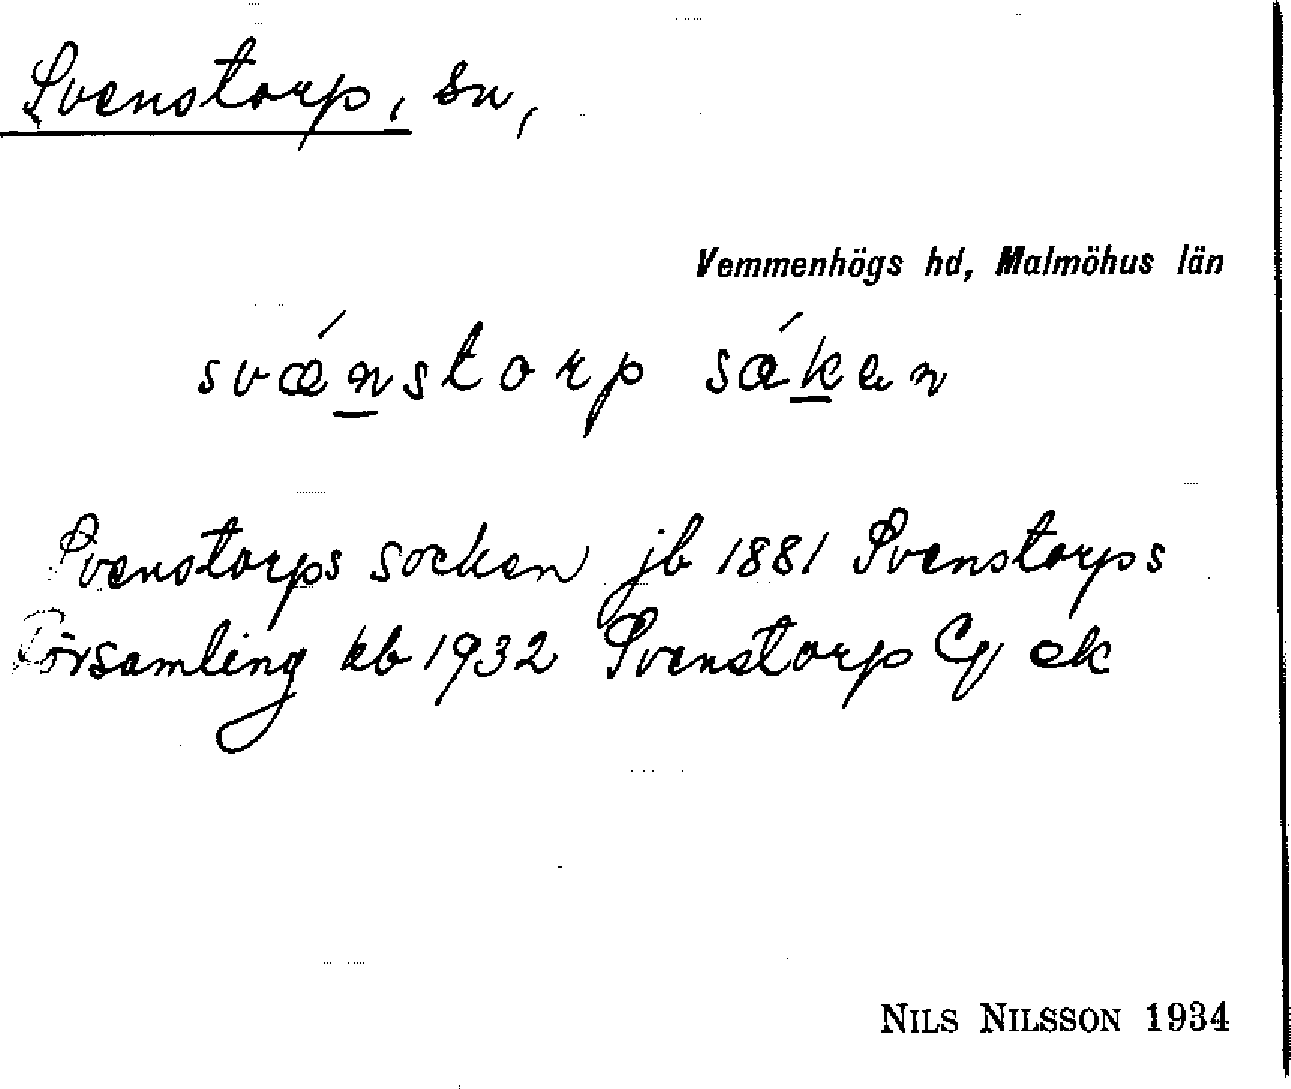 Svenstorp, sn,
Vemmenhögs hd, Malmöhus län
svæ´nstorp sa´ken
Svenstorps socken jb 1881 Svenstorps
Församling kb 1932 Svenstorp Cg ek
NILS NILSSON 1934